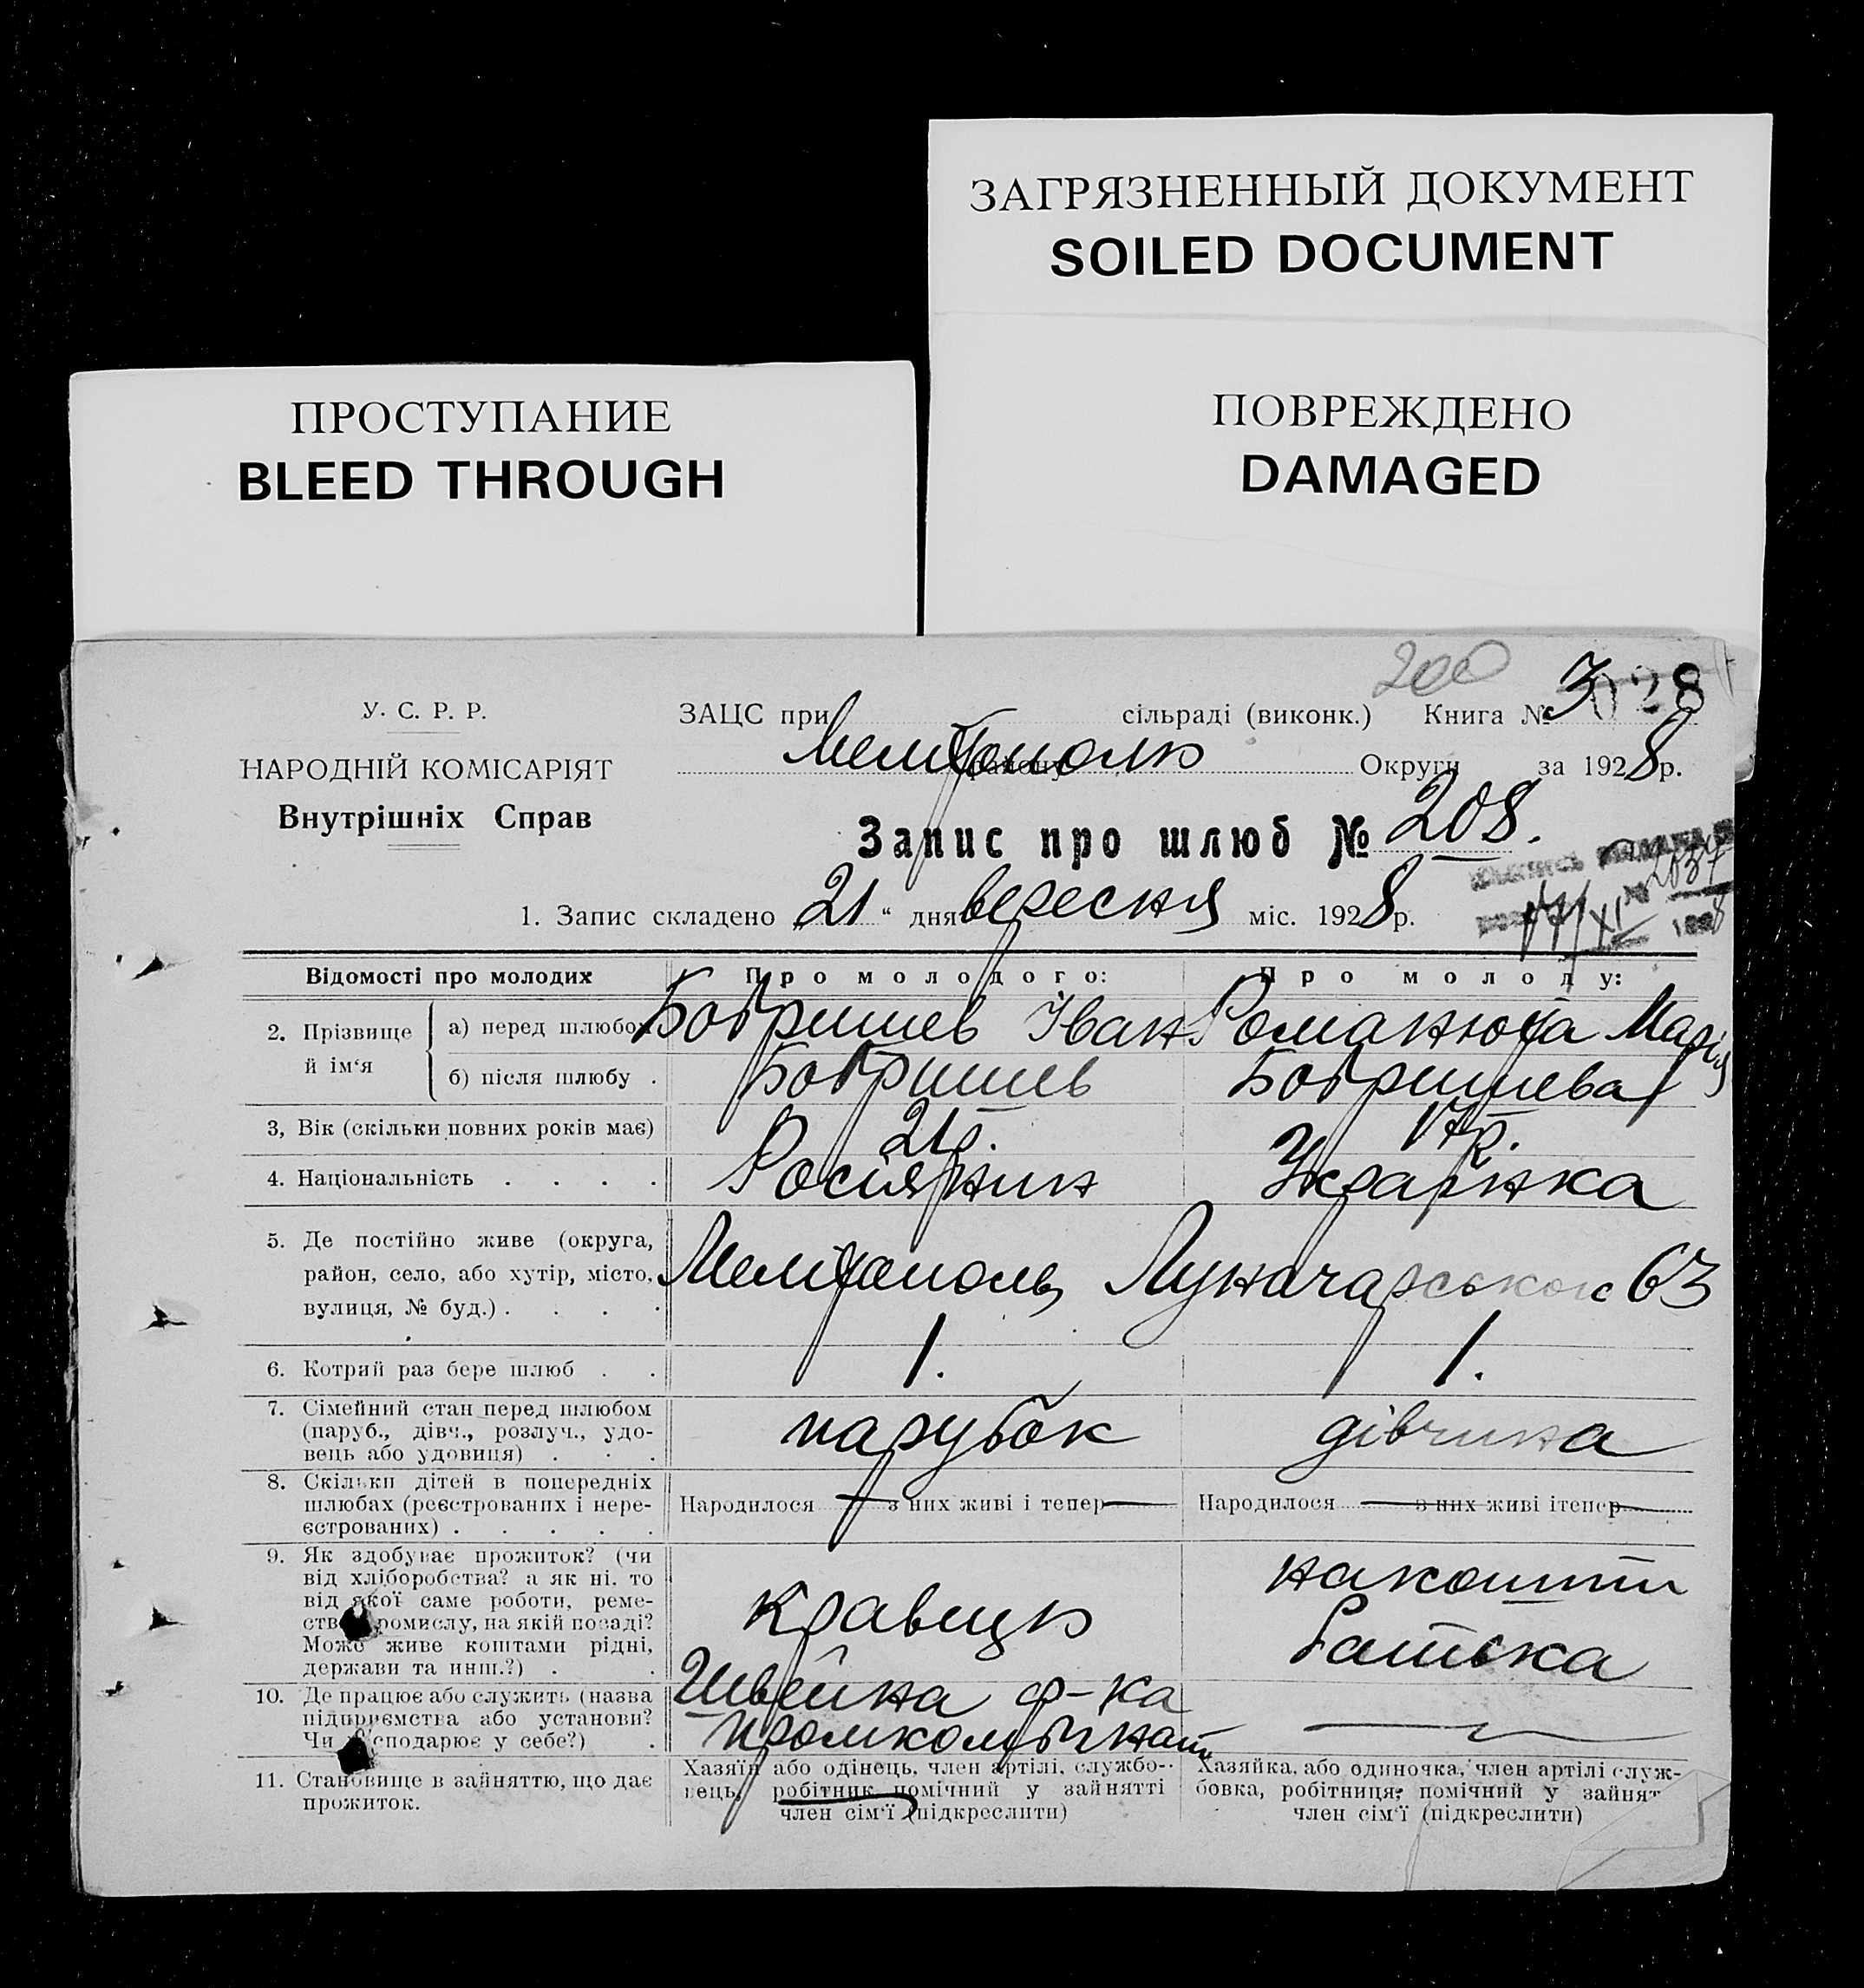 ЗАГРЯЗНЕННЫЙ ДОКУМЕНТ
SOILED DOCUMENT
ПРОСТУПАНИЕ
BLEED THROUGH
ПОВРЕЖДЕНО
DAMAGED
200
У. С. Р. Р.
НАРОДНІЙ КОМІСАРІЯТ
Внутрішніх Справ
ЗАЦС при сільраді (виконк.) Книга № 3 028
району Округи за 1928 р.
Запис про шлюб № 208.
2037
1. Запис складено 21 “ дня вересня міс. 1928 р.
Відомості про молодих
Про молодого:
Про молоду:
2. Прізвище й ім‘я
а) перед шлюбом
Бобришев Іван
Марія
б) після шлюбу .
Бобришев
Бобришева
3, Вік (скільки повних років має)
21р.
17р.
4. Національність . . . .
Росіянин
Українка
5. Де постійно живе (округа,
район, село, або хутір, місто,
вулиця, № буд.) . . . .
Мелітополь, Луначарського 63
6. Котрий раз бере шлюб . .
1.
1.
7. Сімейний стан перед шлюбом
(паруб., дівч., розлуч., удо-
вець або удовиця) . . .
парубок
дівчина
8. Скільки дітей в попередніх
шлюбах (реєстрованих і нере-
єстрованих) . . . . .
Народилося — з них живі і тепер —
Народилося — з них живі ітепер —
9. Як здобуває прожиток? (чи
від хліборобства? а як ні. то
від якої саме роботи, реме-
ств промислу, на якій посаді?
Може живе коштами рідні,
держави та инш.?) . .
кравець
на кошти
батька
10. Де працює або служить (назва
підприємства або установи?
Чи господарює у себе?) .
Швейна ф-ка
промкомбінат
—
11. Становище в зайняттю, що дає
прожиток.
Хазяїн або одінець, член артілі, службо-
вець, робітник помічний у зайнятті
член сім‘ї (підкреслити)
Хазяйка, або одиночка, член артілі служ-
бовка, робітниця, помічний у зайнят
член сім‘ї (підкреслити)